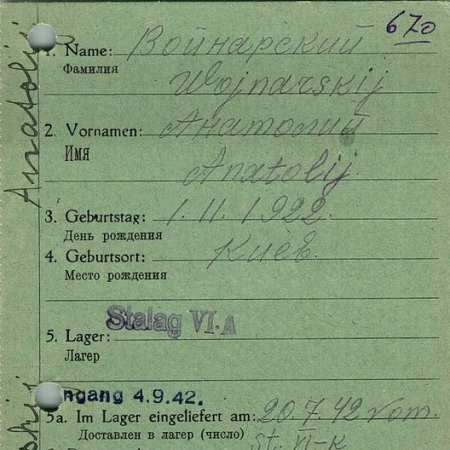 670
1. Name: Войнарский
Фамилия
Wojnarskij
2. Vornamen: Анатолий
Имя
Anatolij
3. Geburtstag: 1. 11. 1922.
День рождения
4. Geburtsort: Киев.
Место рождения
Stalag VI. A
5. Lager:
Лагер
ngang 4.9.42.
5a. Im Lager eingeliefert am: 20.7.42 vom.
Доставлен в лагер (число) St. VI-K
Anatolij